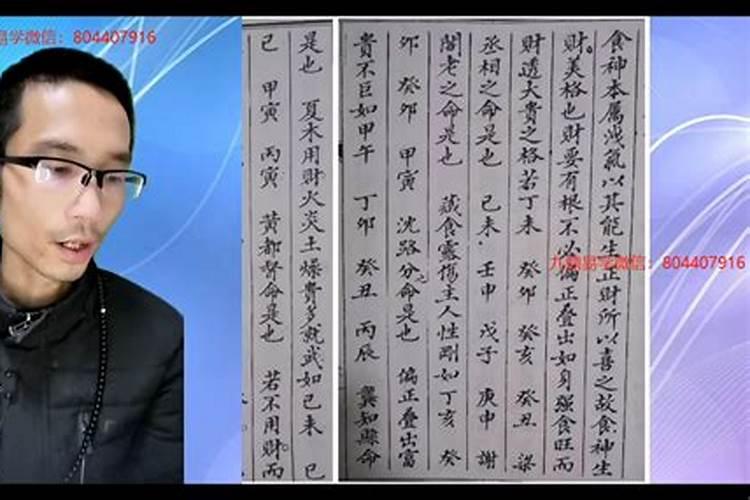 易学微信：804407916
食神本属泄氣以其能生正財所以喜之故食神生
財美格也財要有根不必偏正叠出如身强食旺而
財透大貴之格若丁未 癸卯 癸亥 癸丑 梁
丞相之命是也 己未 壬申 戊子 庚申 謝
閣老之命是也 藏食露傷主人性剛如丁亥 癸
卯 癸卯 甲寅 沈路分之命是也 偏正叠出富
貴不巨如甲午 丁卯 癸丑 丙辰 龔知縣命
是也 夏木用財火炎土燥貴多就武如己未 己
巳 甲寅 丙寅 黄都督命是也 若不用財而
易学微信：804407916